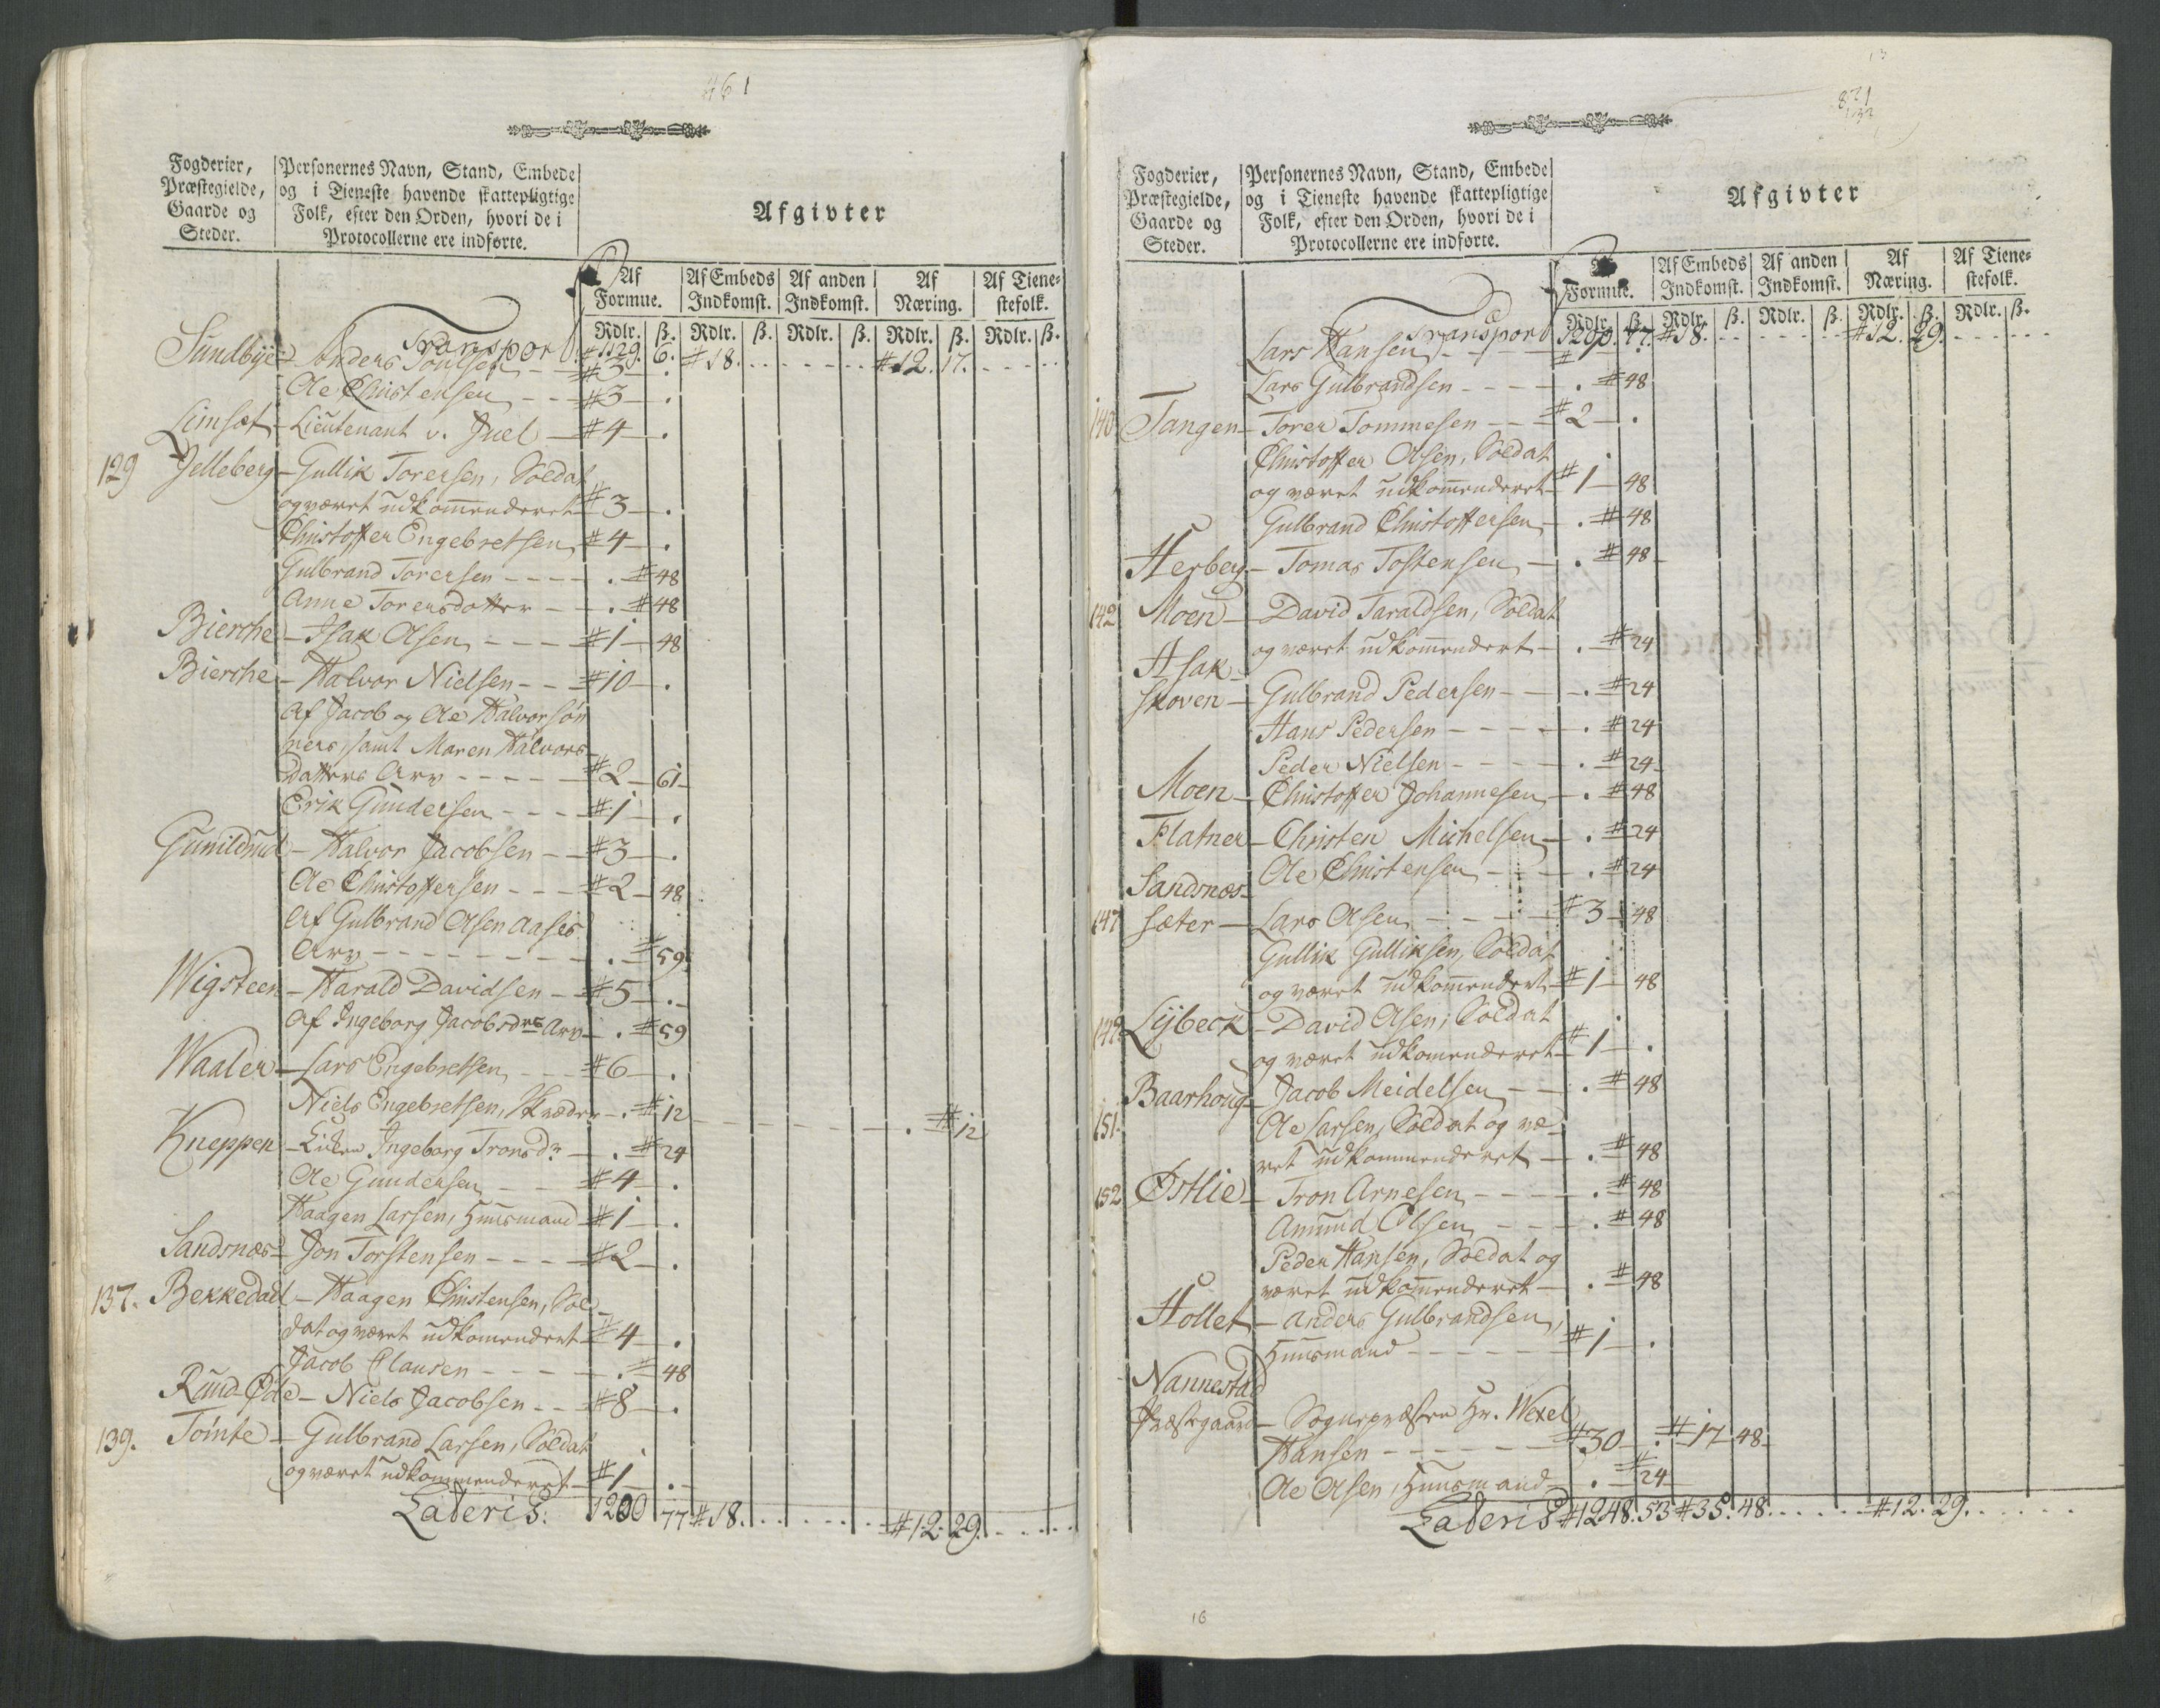 461
Fogderier, Præstegielde, Gaarde og Steder.
Personernes Navn, Stand, Embede og i Tieneste havende skattepligtige Folk, efter den Orden, hvori de i Protocollerne ere indførte.
Afgivter
Af Formue. Af Embeds Indkomst. Af anden Indkomst. Af Næring. Af Tiene=stefolk.
Rdlr. ß. Rdlr. ß. Rdlr. ß. Rdlr. ß. Rdlr. ß.
Transport # 1129. 6. # 18. # 12. 17.
Sundbye - Anders Poulsen # 3 .
Ole Christensen # 3 .
Limsæt - Lieutenant v. Juel # 4 .
129 Jelleberg - Gullik Torersen, Soldat
og været udkom̄enderet # 3 .
Christoffer Engebretsen # 4 .
Gulbrand Torersen . # 48
Anne Torersdotter . # 48
Bierche - Isak Olsen # 1 48
Bierche - Halvor Nielsen # 10 .
Af Jacob og Ole Halvorsøn
ners, samt Maren Halvors
datters Arv # 2 61
Erik Gundersen # 1 .
Gunildrud - Halvor Jacobsen # 3 .
Ole Christoffersen # 2 48
Af Gulbrand Olsen Aases
Arv . # 59
Wigsteen - Harald Davidsen # 5 .
Af Ingeborg Jacobsdrs Arv . # 59
Waaler - Lars Engebretsen # 6 .
Niels Engebretsen, Skrædr . # 12 . # 12
Kneppen - Enken Ingeborg Tronsdr . # 24
Ole Gundersen # 4 .
Haagen Larsen, Huusmand # 1 .
Sandsnæs - Jon Torstensen # 2 .
137. Bekkedad - Haagen Christensen, Sol
dat og været udkomendert # 4 .
Jacob Clausen . # 48
Rund Øde - Niels Jacobsen # 8 .
139. Tomte - Gulbrand Larsen, Soldat
og været udkommenderet # 1 .
Lateris. 1200 77 # 18. # 12. 29.
13
821
Fogderier, Præstegielde, Gaarde og Steder.
Personernes Navn, Stand, Embede og i Tieneste havende skattepligtige Folk, efter den Orden, hvori de i Protocollerne ere indførte.
Afgivter
Formue. Af Embeds Indkomst. Af anden Indkomst. Af Næring. Af Tiene=stefolk.
Rdlr. ß. Rdlr. ß. Rdlr. ß. Rdlr. ß. Rdlr. ß.
Transport 1200. 77. # 18. # 12. 29.
Lars Hansen
Lars Gulbrandsen . # 48
140 Tangen - Torer Tommesen # 2 .
Christoffer Olsen, Soldat
og været udkom̄enderet # 1 48
Gulbrand Christoffersen . # 48
Herberg - Tomas Tostensen . # 48
142 Moen - David Taraldsen, Soldat
og været udkom̄endert . # 24
Asak
skoven - Gulbrand Pedersen . # 24
Hans Pedersen . # 24
Peder Nielsen . # 24
Moen - Christoffer Johannesen . # 48
Flatner - Christen Michelsen . # 24
Ole Christensen . # 24
Sandsnæs
147 sæter - Lars Olsen # 3 48
Gullik Gulliksen, Soldat
og været udkom̄endert # 1 48
149 Lybeck - David Olsen, Soldat
og været udkomenderet # 1 .
Baarhoug - Jacob Meidelsen . # 48
151. Ole Larsen, Soldat og væ
ret udkommenderet . # 48
152 Østlie - Tron Arnesen . # 48
Amund Olsen . # 48
Peder Hansen, Soldat og
været udkom̄enderet . # 48
Hollet - Anders Gulbrandsen,
Huusmand # 1 .
Nannestad
Præstegaard - Sognepræsten Hr. Wexel
Hansen # 30 . # 17 48
Ole Olsen, Huusmand . # 24
Lateris # 1248. 53 # 35. 48. # 12. 29.
16